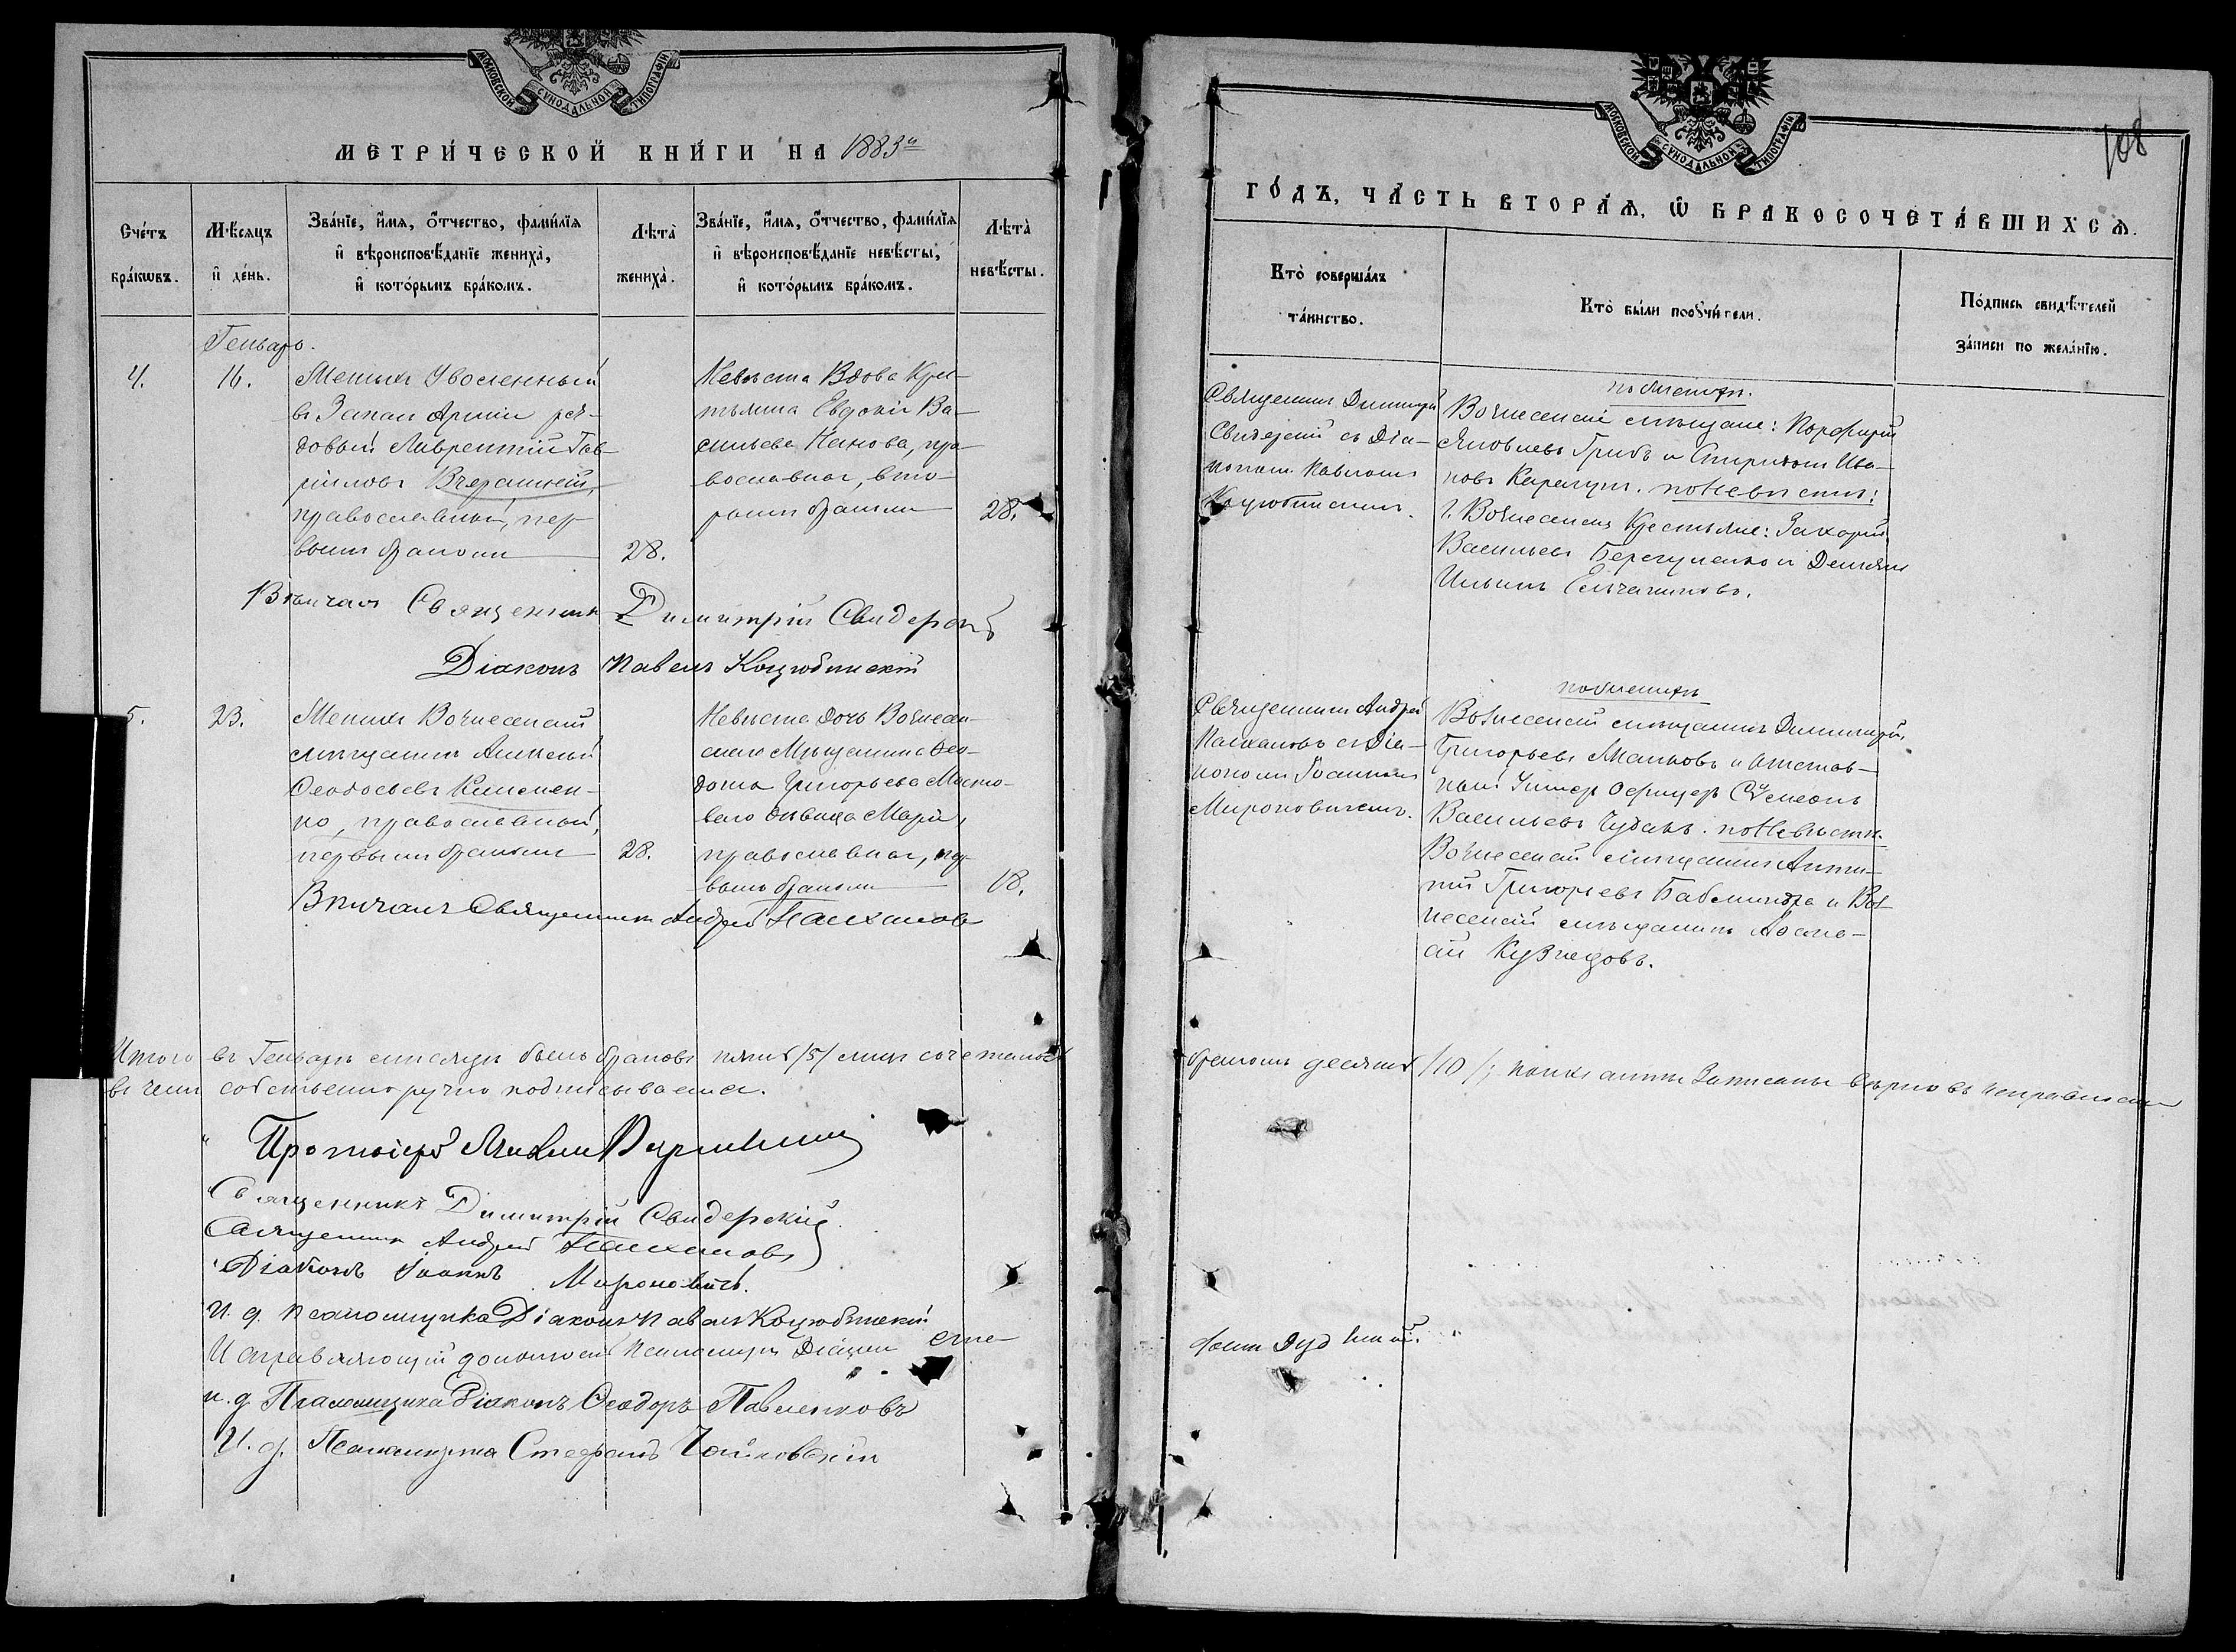 МОСКОВСКОЙ СѴНОДАЛЬНОЙ ТИПОГРАФІИ
МЕТРИ́ЧЕСКОЙ КНИ́ГИ НА 1883й
Сче́тъ бра́кѡвъ.
Мѣ́сяцъ и҆ де́нь.
Зва́нїе, и҆́мѧ, ѻ҆́тчество, фами́лїѧ
и҆ вѣроисповѣ́данїе женихà,
и҆ кото́рымъ бра́комъ.
Лѣтà женихà.
Зва́нїе, и҆́мѧ, ѻ҆́тчество, фами́лїѧ
и҆ вѣроисповѣ́данїе невѣ́сты,
и҆ кото́рымъ бра́комъ.
Лѣтà невѣ́сты.
Генварь.
4.
16.
Женихъ Уволенный
въ Запасъ Арміи ря-
довый Лаврентій Гав-
ріиловъ Вчерашній,
православный, пер-
вымъ бракомъ
28.
Невѣста Вдова Крес-
тьянка Евдокія Ва-
сильева Панова, пра-
вославная, вто-
рымъ бракомъ
28.
Вѣнчалъ Священникъ Димитрій Свидерскій
Діаконъ Павелъ Коцюбинскій
5.
23.
Женихъ Вознесенскій
мѣщанинъ Алексѣй
Ѳеодосьевъ Клименко,
но, православный,
первымъ бракомъ
28.
Невѣста дочь Вознесен-
скаго Мѣщанина Ѳео-
дота Григорьева
дѣвица Марія,
православная, пер-
вымъ бракомъ
18.
Вѣнчалъ Священникъ Андрей
Итого въ Генварѣ мѣсяцѣ было браковъ пять /5/ лицъ сочетанныхъ
въ чемъ собственноручно подписываемся.
Протоіерей
Священникъ Димитрій Свидерскій
Священникъ Андрей
Діаконъ Іоаннъ Мироновичъ.
И. д. псаломщика Діаконъ Павелъ Коцюбинскій
Исправляющій должность Псаломщика Діаконъ Сте-
и. д. Псаломщика Діаконъ Ѳеодоръ Павленковъ
И. д. Псаломщика Стефанъ Чайковскій
МОСКОВСКОЙ СѴНОДАЛЬНОЙ ТИПОГРАФІИ
108
ГО́ДЪ, ЧА́СТЬ ВТОРА́Ѧ, Ѡ҆ БРАКОСОЧЕТА́ВШИХСѦ.
Кто̀ соверша́лъ та́инство.
Кто̀ бы́ли порꙋчи́тели.
По́дпись свидѣ́телей за́писи по жела́нїю.
Священникъ Димитрій
Свидерскій съ Діа-
кономъ Павломъ
Коцюбинскимъ.
по женихѣ.
Вознесенскіе мѣщане: Порфирій
Яковлевъ Грибъ и Спиридонъ Ива-
новъ. по невѣстѣ:
г. Вознесенска Крестьяне: Захарій
Васильевъ и Демьянъ
Ильинъ
Священникъ Андрей
съ Діа-
кономъ Іоанномъ
Мироновичемъ.
по женихѣ
Вознесенскій мѣщанинъ Димитрій
Григорьевъ Маньковъ и отстав-
ный Унтеръ Офицеръ Симеонъ
Васильевъ Чубакъ. по невѣстѣ.
Вознесенскій мѣщанинъ Анти-
пій Григорьевъ и Воз-
несенскій мѣщанинъ
Кузнецовъ.
бракомъ десять /10/; каковые акты Записаны вѣрно въ исправности
фанъ Дуд